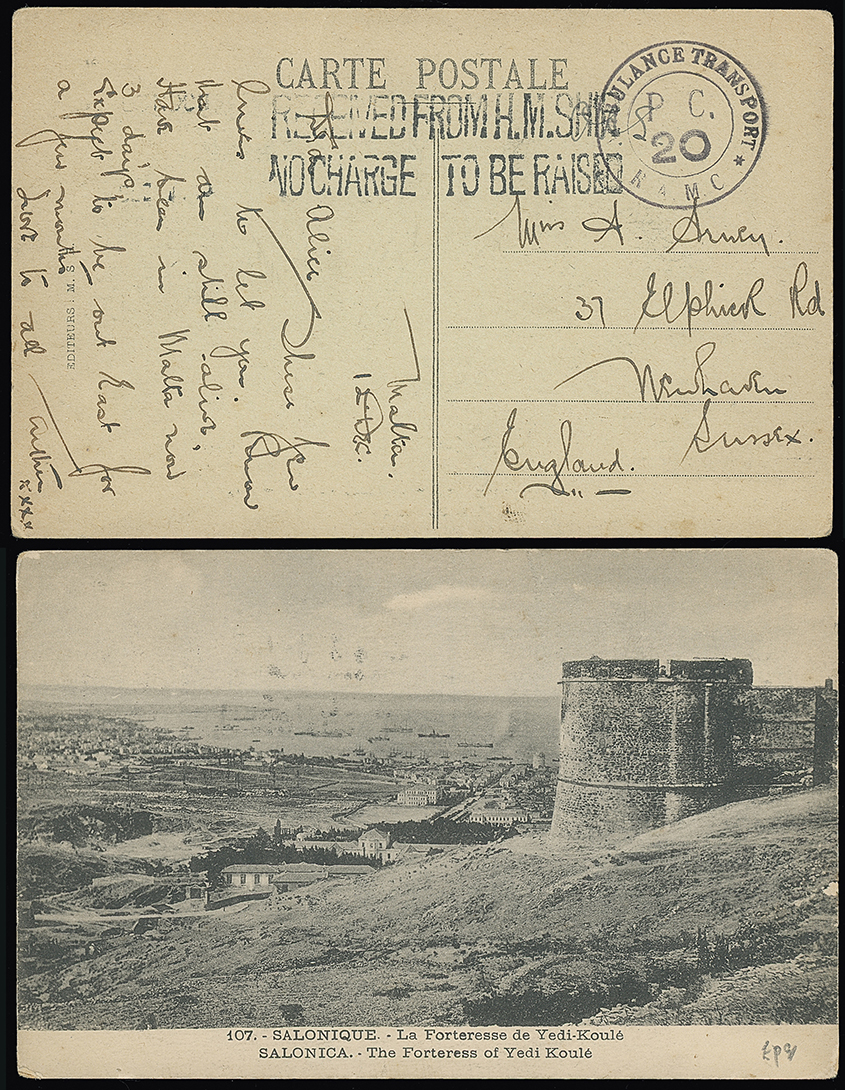 CARTE POSTALE
RECEIVED FROM H.M. SHIP
NO CHARGE TO BE RAISED
AMBULANCE TRANSPORT
P. C.
20
R A M C
*
Miss A.
37 Elphick Rd
Newhaven
Sussex.
England.
Malta.
Alice Just a few
lines to let you know
that am still alive,
Have been in Malta now
3 days,
Expect to be out East for
a few months
Love to all
Arthur
xxxx
EDITEURS : S. M.
107. - SALONIQUE. - La Forteresse de Yedi-Koulé
SALONICA. - The Forteress of Yedi Koulé